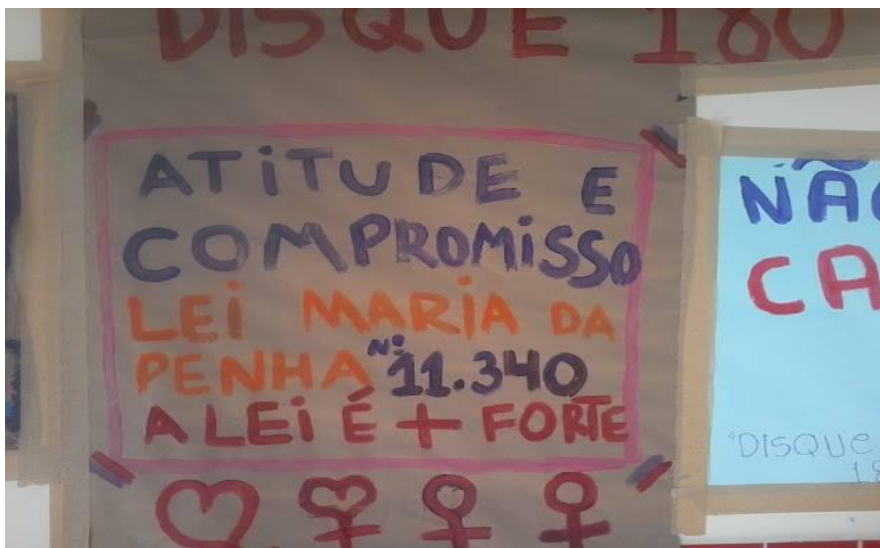 DISQUE 180
ATiTUDE E
COMPROMiSSO
LEi MARiA DA
PENHA Nº 11.340
A LEi É + FORTE
NÃO
"DISQUE